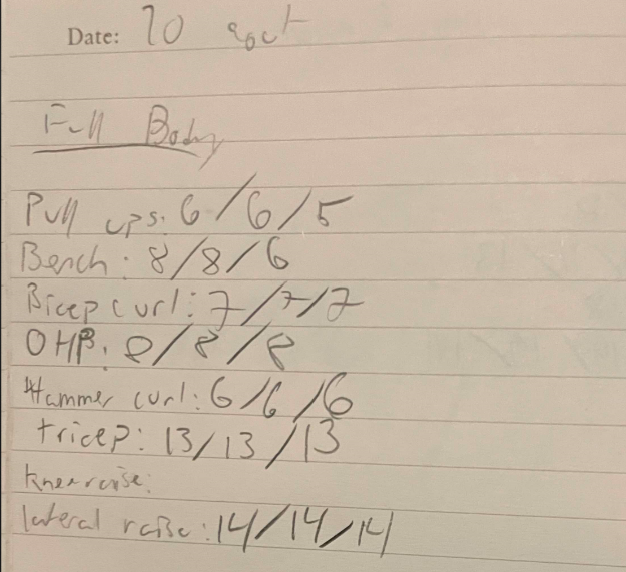 Date: 20
Full Body
Pull ups: 6/6/5
Bench: 8/8/6
Bicep curl: 7/7/7
OHP: 8/8/8
Hammer curl: 6/6/6
tricep: 13/13/13
knee raise:
lateral raise: 14/14/14